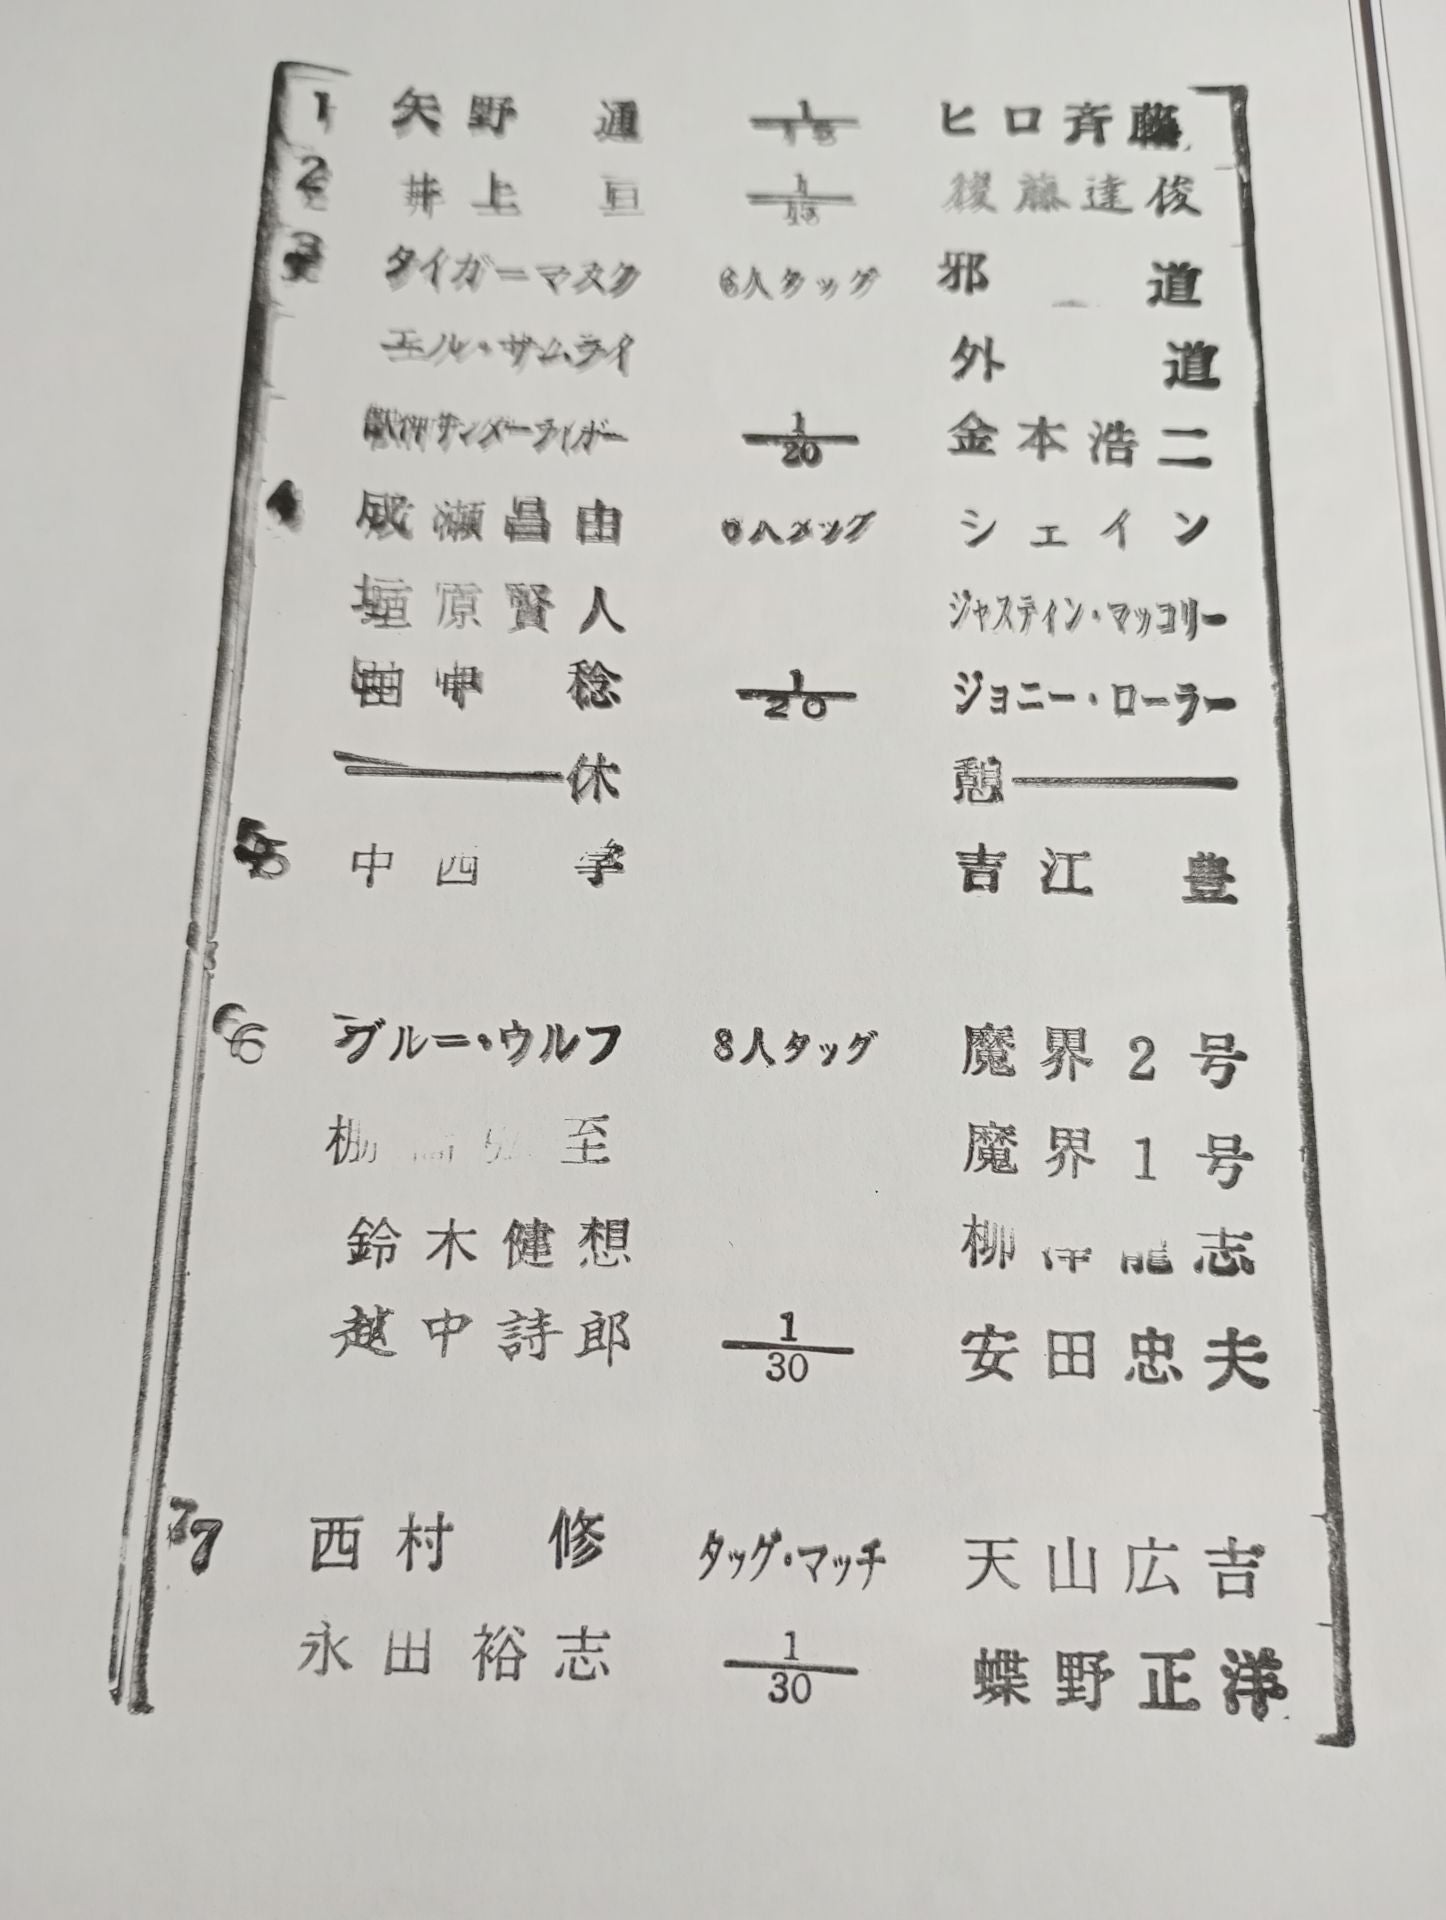 1 矢野 通 1/15 ヒロ斉藤
2 井上 亘 1/15 後藤達俊
3 タイガーマスク 6人タッグ 邪 道
エル・サムライ 外 道
獣神サンダーライガー 1/20 金本浩二
4 成瀬昌由 6人タッグ シェイン
垣原賢人 ジャスティン・マッコリー
田中 稔 1/20 ジョニー・ローラー
休 憩
5 中西 学 吉江 豊
6 ブルー・ウルフ 8人タッグ 魔界2号
棚橋弘至 魔界1号
鈴木健想 柳澤龍志
越中詩郎 1/30 安田忠夫
7 西村 修 タッグ・マッチ 天山広吉
永田裕志 1/30 蝶野正洋